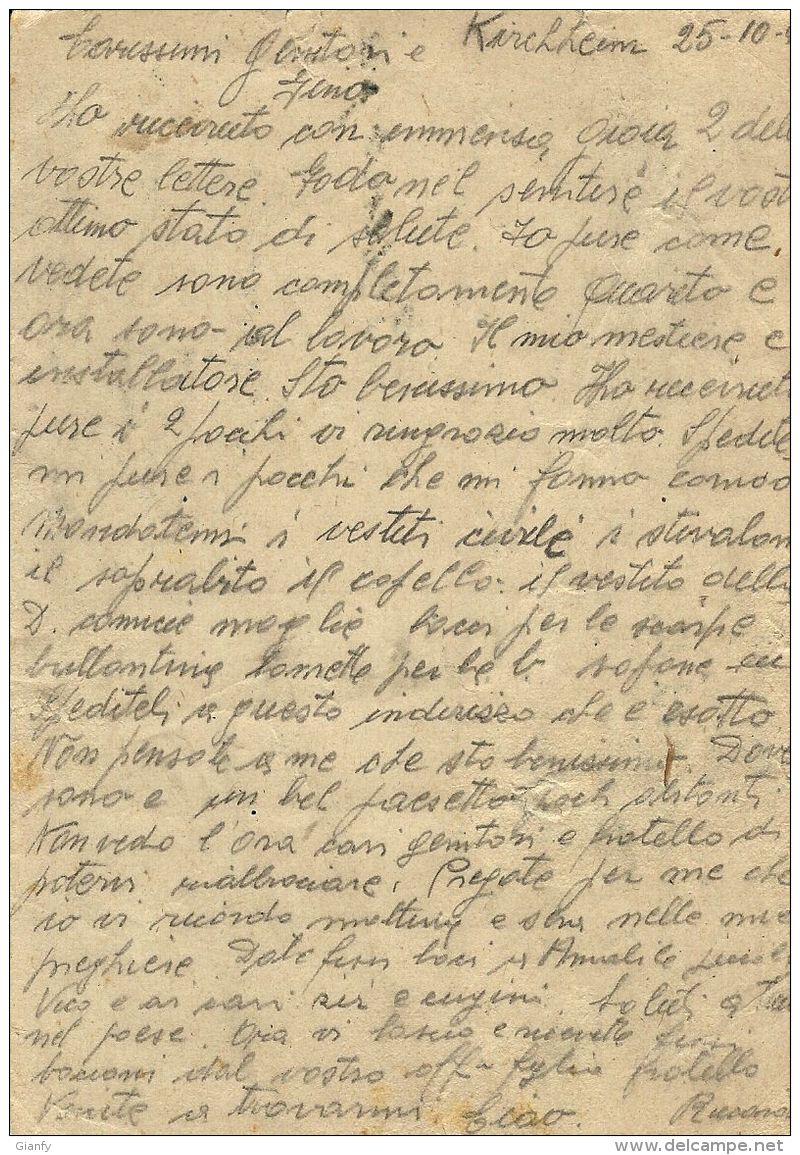 Kirchheim 25-10-
Carissimi Genitori e
Gino
Ho riccevuto con immensa gioia 2 delle
vostre lettere. Godo nel sentire il vostr
ottimo stato di salute. Io pure come
vedete sono completamente Guarito e
ora sono al lavoro. Il mio mestiere e
installatore. Sto benissimo. Ho riccevuto
pure i 2 pacchi vi ringrazio molto. Spedite
mi pure i pacchi che mi fanno comodo
Mandatemi i vestiti civile i stivalon
il soprabito il capello. il vestito della
D. camicie maglie lacci per le scarpe
brillantina lamette per la b. sapone
Spediteli a questo indirizzo che e esatto
Non pensate a me che sto benissimo. Dove
sono e un bel paesetto pochi abitanti
Non vedo l'ora cari genitori e fratello di
potervi riabbraciare. Pregate per me che
io vi ricordo mattina e sera nelle mie
preghiere. Date fissi baci a
Vico e ai cari zii e cugini. Saluti a tu
nel paese. Ora vi lascio e ricevete fissi
bacioni dal vostro aff. figlio fratello
Venite a trovarmi. Ciao.
Gianfy
www.delcampe.net